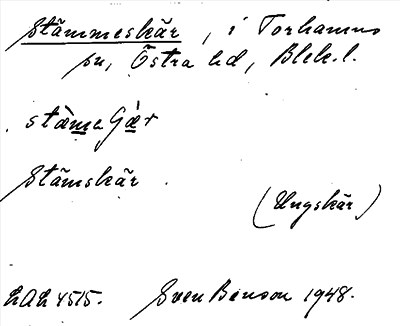 Stämmeskär, i Torhamns
sn, Östra hd, Blek. l.
stä̀meGä̀r
Stämskär
(Ungskär)
LAL 4515. Sven Benson 1948.